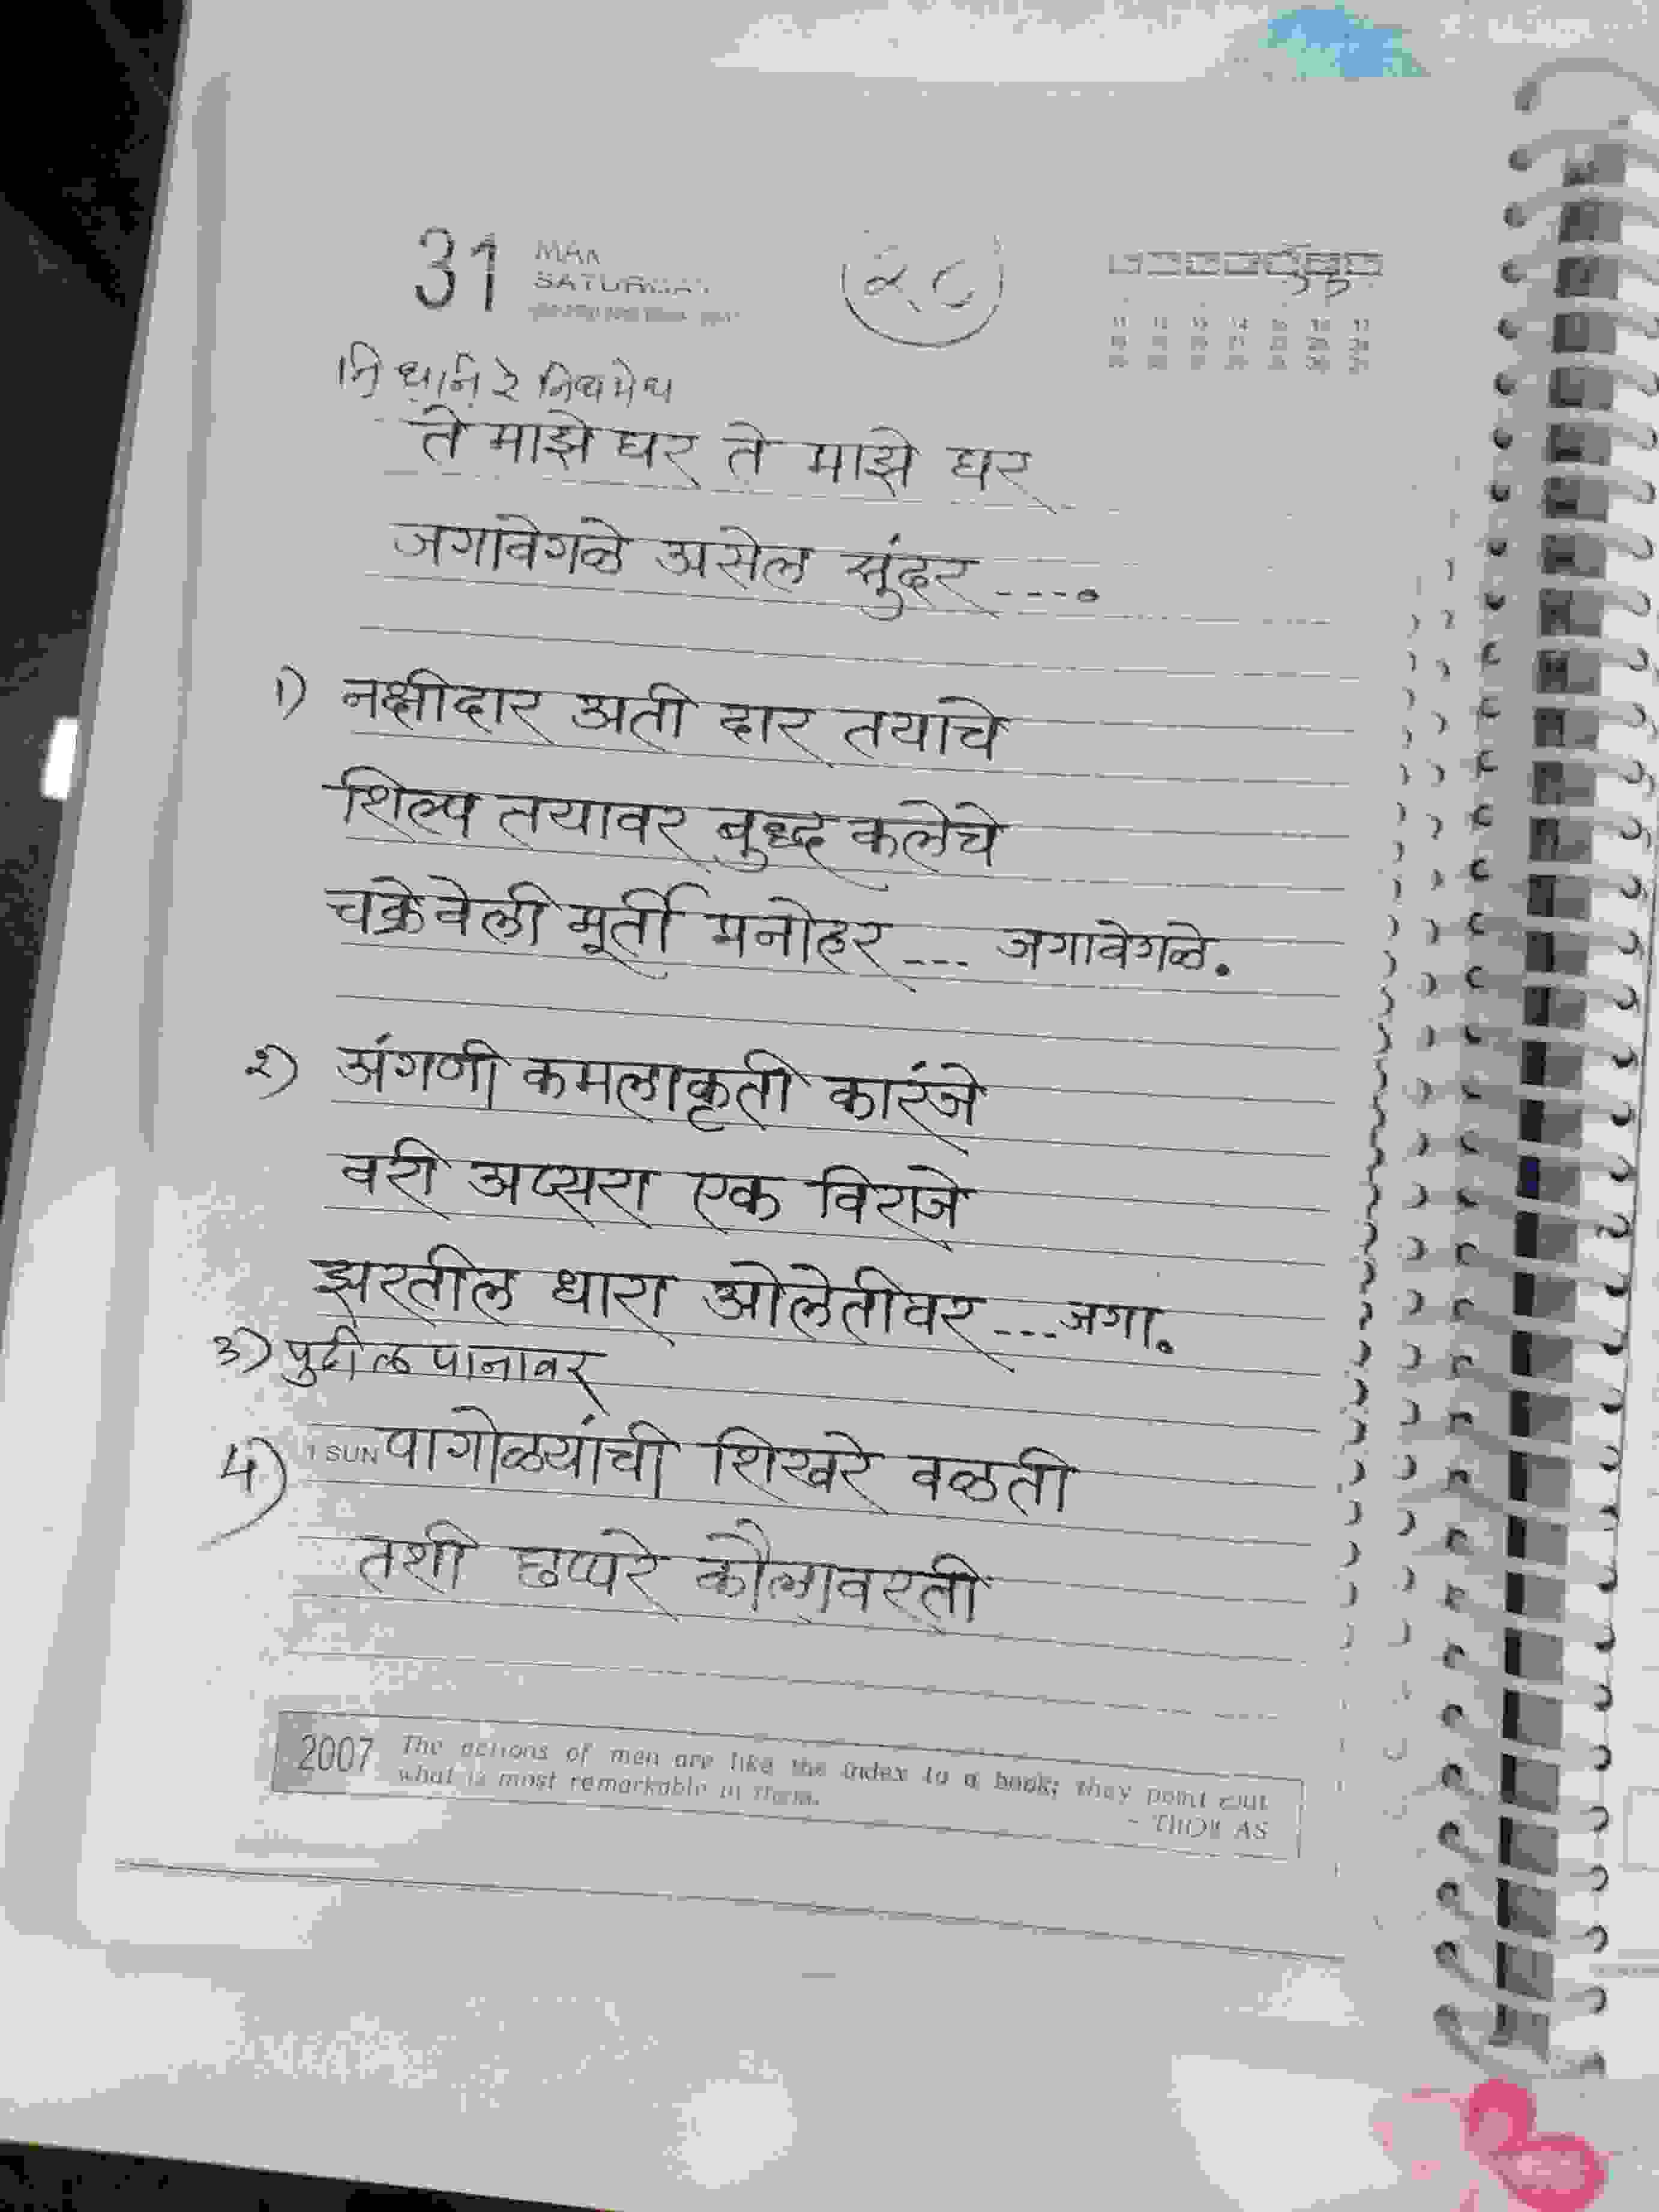 31 MAR
SATURDAY
२८
11 12 13 14 15 16 17
18 19 20 21 22 23 24
25 26 27 28 29 30 31
नि ध नि रे
ते माझे घर ते माझे घर
जगावेगळे असेल सुंदर ----.
१) नक्षीदार अती दार तयाचे
शिल्प तयावर बुद्ध कलेचे
चक्रेवेली मूर्ती मनोहर --- जगावेगळे.
२) अंगणी कमलाकृती कारंजे
वरी अप्सरा एक विराजे
झरतील धारा ओलेतीवर --- जगा.
३) पुढील पानावर
1 SUN
4) पागोळयांची शिखरे वळती
तशी छप्परे कौलावरती
2007 The actions of men are like the index to a book; they point out
what is most remarkable in them.
- THOMAS